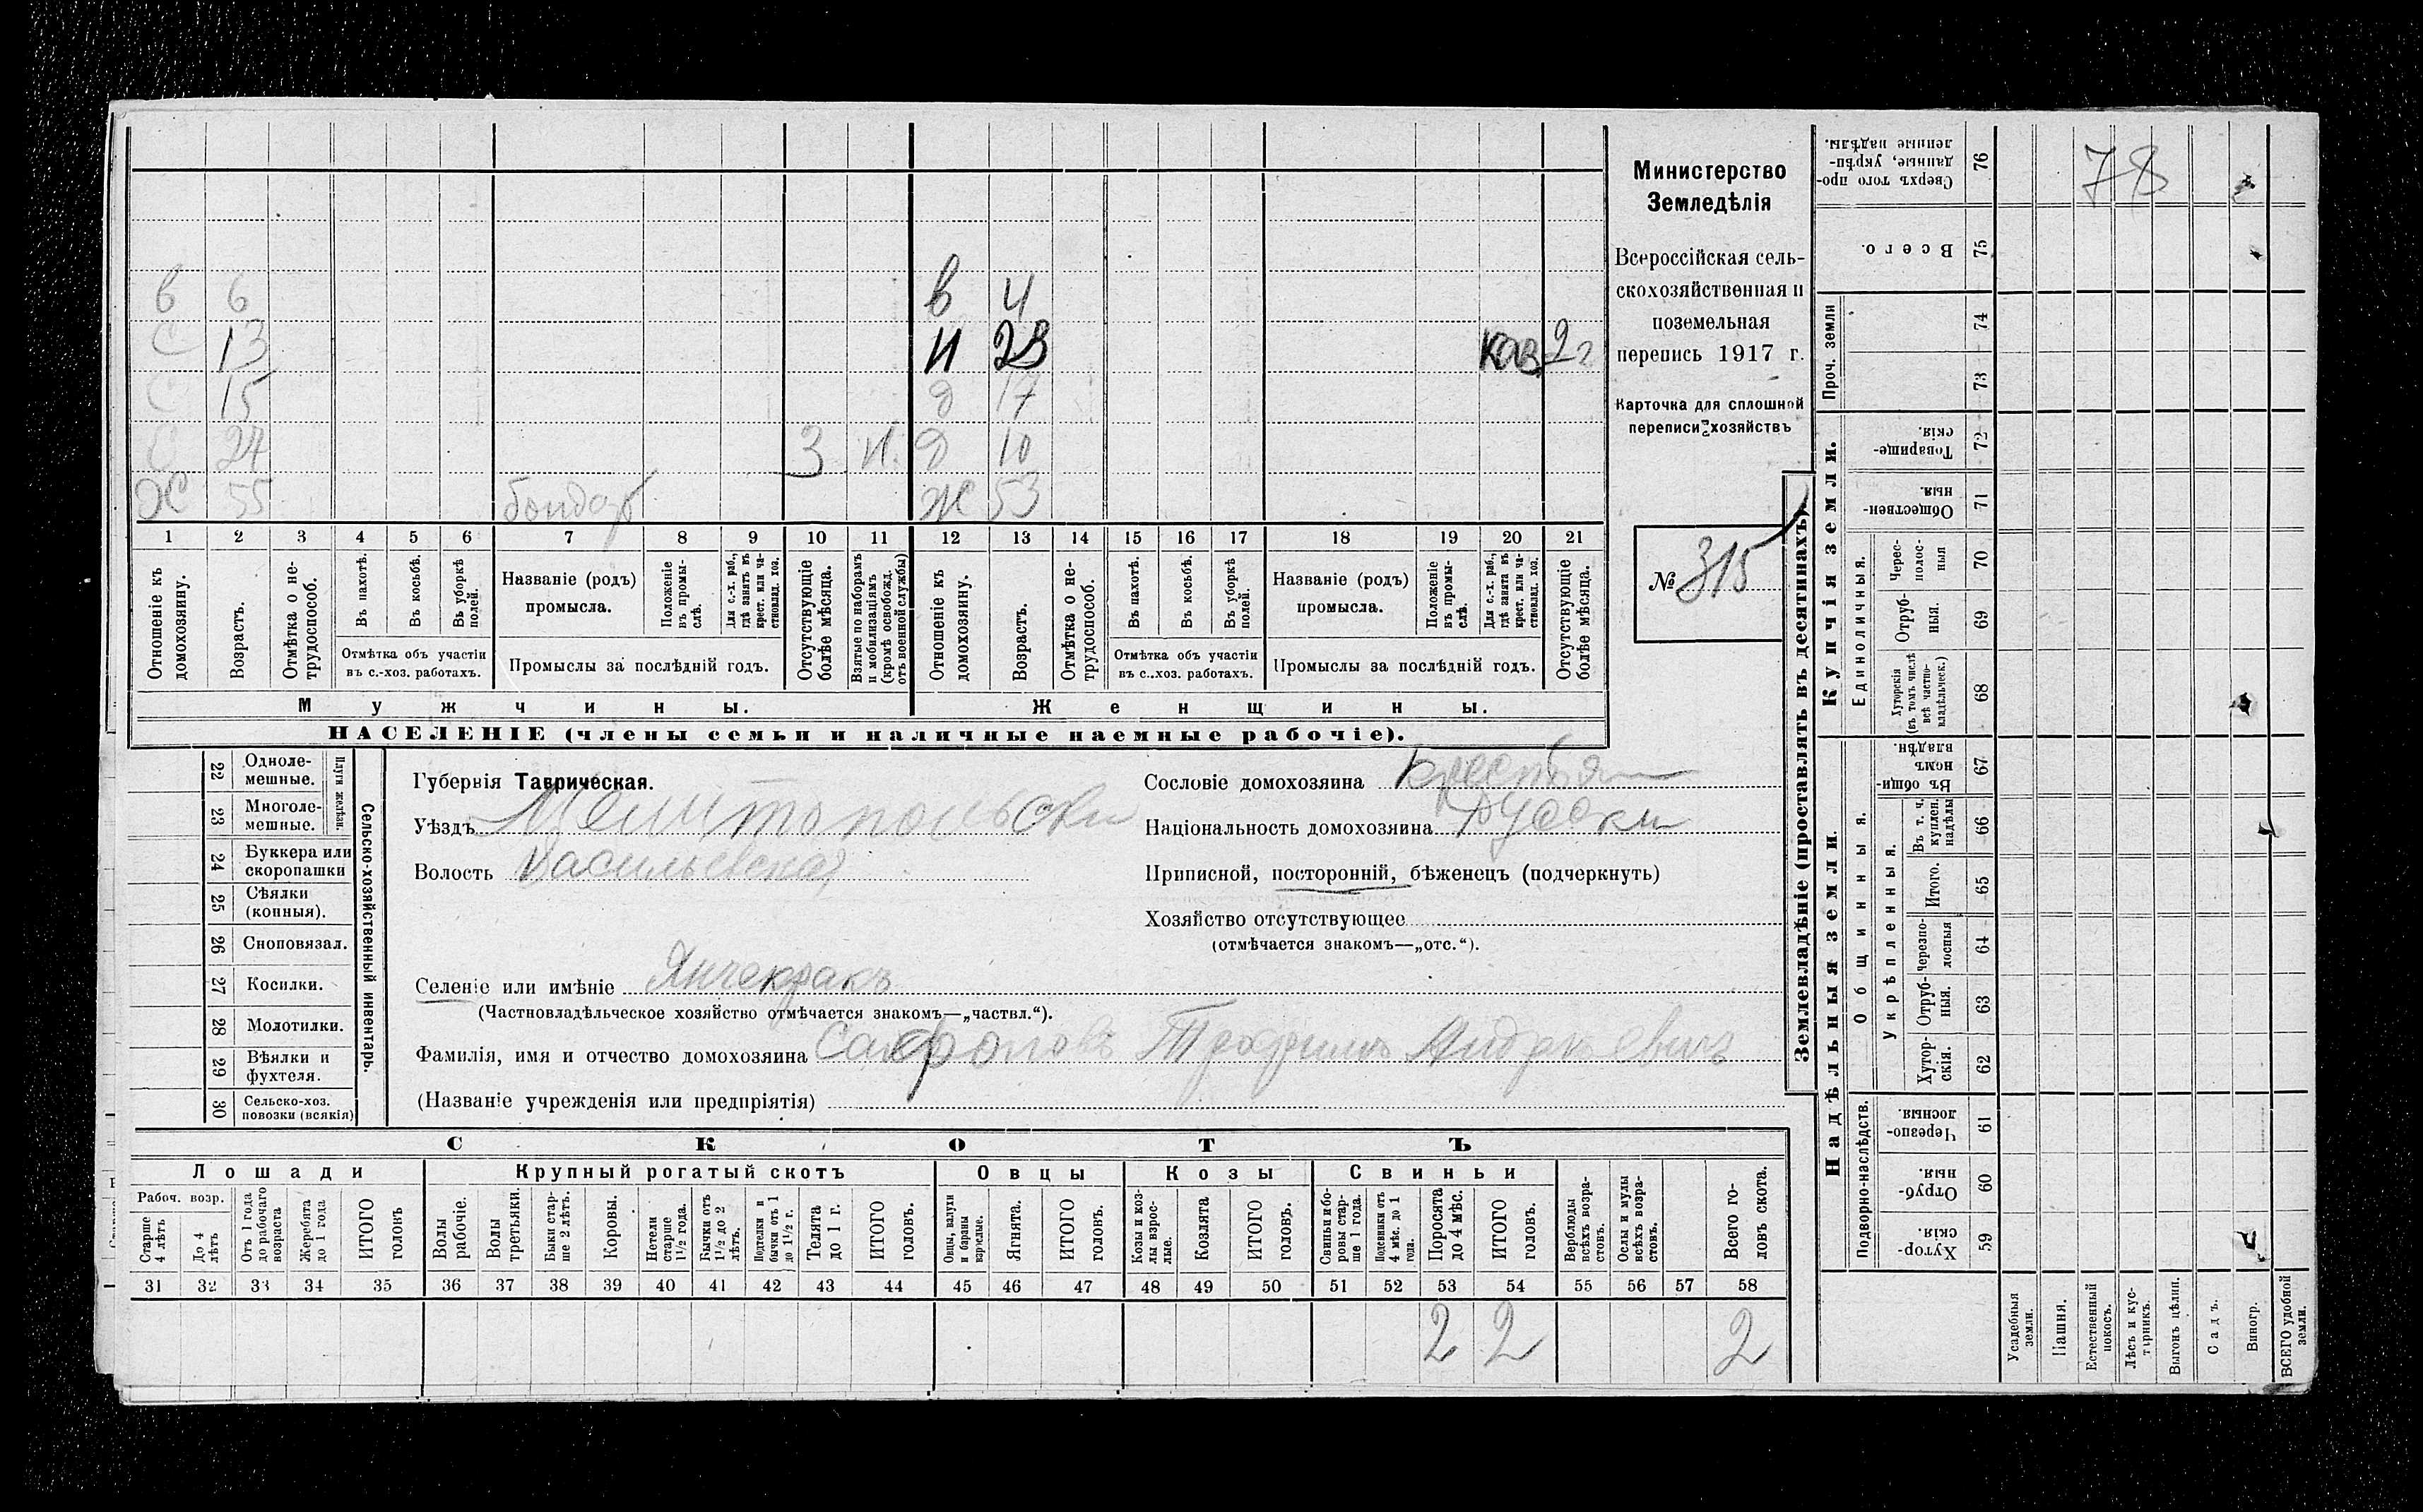 в 6 в 4
с 13 н 23 2
с 15 д 17
с 24 3 н. д 10
ж 55 бондар ж 53
1 2 3 4 5 6 7 8 9 10 11 12 13 14 15 16 17 18 19 20 21
Отношеніе къ домохозяину.
Возрастъ.
Отмѣтка о не-трудоспособ.
Въ пахотѣ.
Въ косьбѣ.
Въ уборкѣ полей.
Отмѣтка объ участіи въ с.-хоз. работахъ.
Названіе (родъ) промысла.
Положеніе въ промы-слѣ.
Для с.-х. раб., гдѣ занятъ въ крест. или ча-стновлад. хоз.
Промыслы за послѣдній годъ.
Отсутствующіе болѣе мѣсяца.
Взятые по наборамъ и мобилизаціямъ (кромѣ освобожд. отъ военной службы)
Отношеніе къ домохозяину.
Возрастъ.
Отмѣтка о не-трудоспособ.
Въ пахотѣ.
Въ косьбѣ.
Въ уборкѣ полей.
Отмѣтка объ участіи въ с.-хоз. работахъ.
Названіе (родъ) промысла.
Положеніе въ промы-слѣ.
Для с.-х. раб., гдѣ занятъ въ крест. или ча-стновлад. хоз.
Промыслы за послѣдній годъ.
Отсутствующіе болѣе мѣсяца.
Мужчины. Женщины.
НАСЕЛЕНІЕ (члены семьи и наличные наемные рабочіе).
Министерство
Земледѣлія
Всероссійская сель-
скохозяйственная и
поземельная
перепись 1917 г.
Карточка для сплошной
переписи хозяйствъ
№ 315
Сельско-хозяйственный инвентарь.
Плуги желѣзн.
22 Одноле-мешные.
23 Многоле-мешные.
24 Буккера или скоропашки
25 Сѣялки (конныя).
26 Сноповязал.
27 Косилки.
28 Молотилки.
29 Вѣялки и фухтеля.
30 Сельско-хоз. повозки (всякія)
Губернія Таврическая.
Уѣздъ Мелитопольски
Волость Васильевская
Селеніе или имѣніе Янчекракъ
(Частновладѣльческое хозяйство отмѣчается знакомъ—„частвл.“).
Фамилія, имя и отчество домохозяина Сафоновъ Трофимъ Андреевичъ
(Названіе учрежденія или предпріятія)
Сословіе домохозяина Крестьян
Національность домохозяина Русски
Приписной, посторонній, бѣженецъ (подчеркнуть)
Хозяйство отсутствующее
(отмѣчается знакомъ—„отс.“).
СКОТЪ
Лошади Крупный рогатый скотъ Овцы Козы Свиньи
Рабоч. возр.
Старше 4 лѣтъ
До 4 лѣтъ
Отъ 1 года до рабочаго возраста
Жеребята до 1 года
ИТОГО головъ
Волы рабочіе.
Волы третьяки.
Быки стар-ше 2 лѣтъ.
Коровы.
Нетели старше 1½ года.
Бычки отъ 1½ до 2 лѣтъ.
Подтелки и бычки отъ 1 до 1½ г.
Телята до 1 г.
ИТОГО головъ.
Овцы, валухи и бараны взрослые.
Ягнята.
ИТОГО головъ.
Козы и коз-лы взрос-лые.
Козлята
ИТОГО головъ.
Свиньи и бо-ровы стар-ше 1 года.
Подсвинки отъ 4 мѣс. до 1 года.
Поросята до 4 мѣс.
ИТОГО головъ.
Верблюды всѣхъ возра-стовъ.
Ослы и мулы всѣхъ возра-стовъ.
Всего го-ловъ скота.
31 32 33 34 35 36 37 38 39 40 41 42 43 44 45 46 47 48 49 50 51 52 53 54 55 56 57 58
2 2 2
Землевладѣніе (проставлять въ десятинахъ)
Купчія земли.
Надѣльныя земли.
Сверхъ того про-данные, укрѣп-ленные надѣлы. 76
78
Всего. 75
Проч. земли 74
73
Товарище-скія. 72
Обществен-ныя. 71
Единоличныя.
Черес-полос-ныя 70
Отруб-ныя. 69
Хуторскія (въ томъ числѣ всѣ частно-владѣльческ.) 68
Общинныя.
Въ общин-номъ владѣн. 67
Укрѣпленныя.
Въ т. ч. куплен. надѣлы 66
Итого. 65
Черезпо-лосныя 64
Отруб-ныя. 63
Хутор-скія. 62
Подворно-наслѣдств.
Черезпо-лосныя. 61
Отруб-ныя. 60
Хутор-скія. 59
Усадебныя земли.
Пашня.
Естественный покосъ.
Лѣсъ и кус-тарникъ.
Выгонъ цѣлин.
Садъ.
Виногр.
ВСЕГО удобной земли.